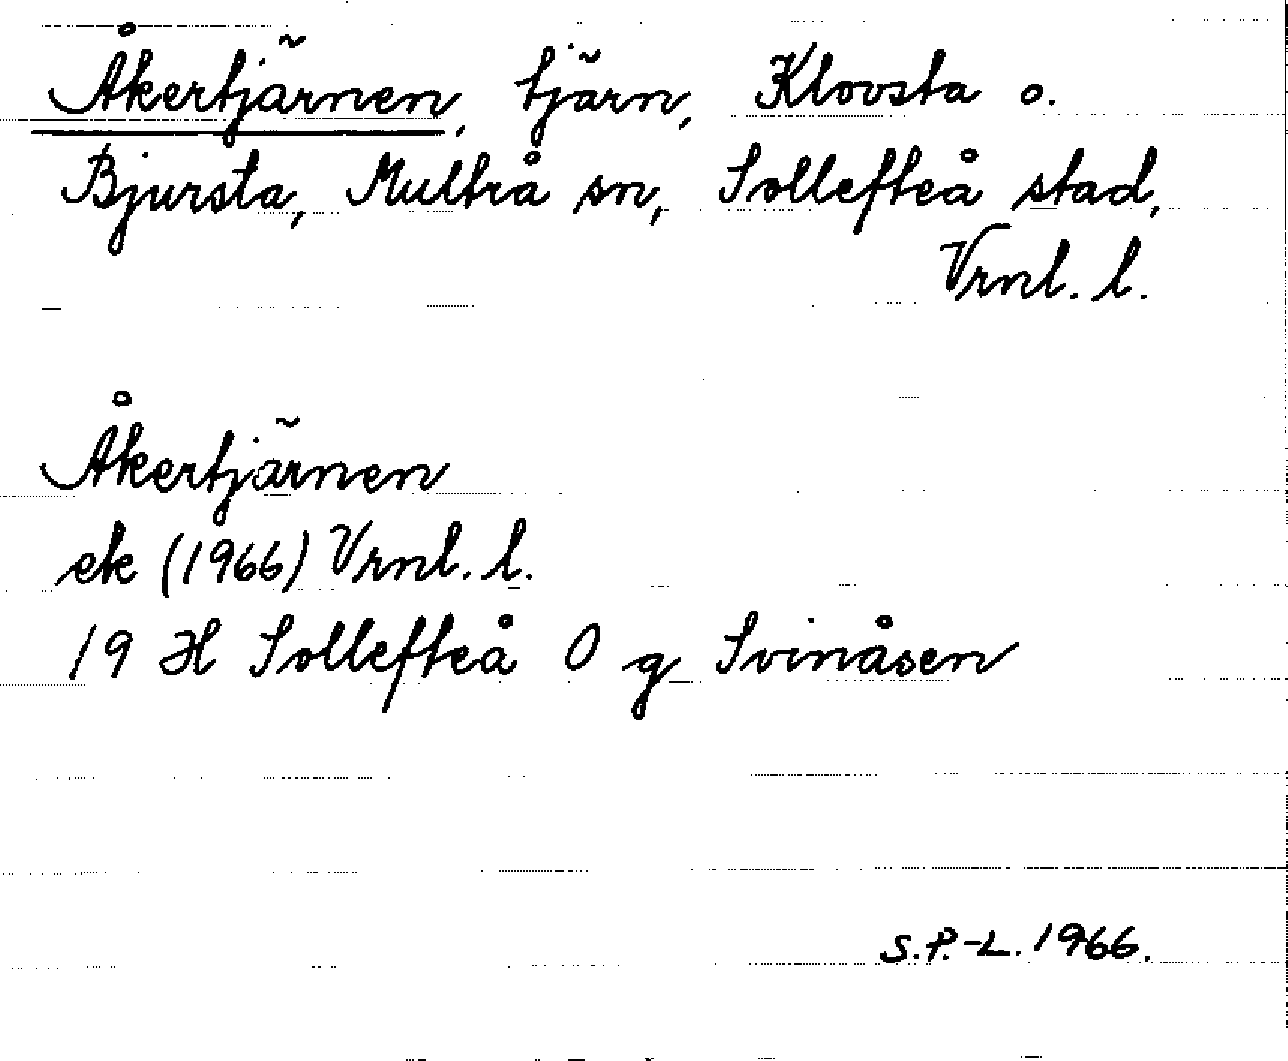 Åkertjärnen, tjärn, Klovsta o.
Bjursta, Multrå sn, Sollefteå stad,
Vrnl. l.
Åkertjärnen
ek (1966) Vrnl. l.
19 H Sollefteå O g Svinåsen
S.P.-L. 1966.